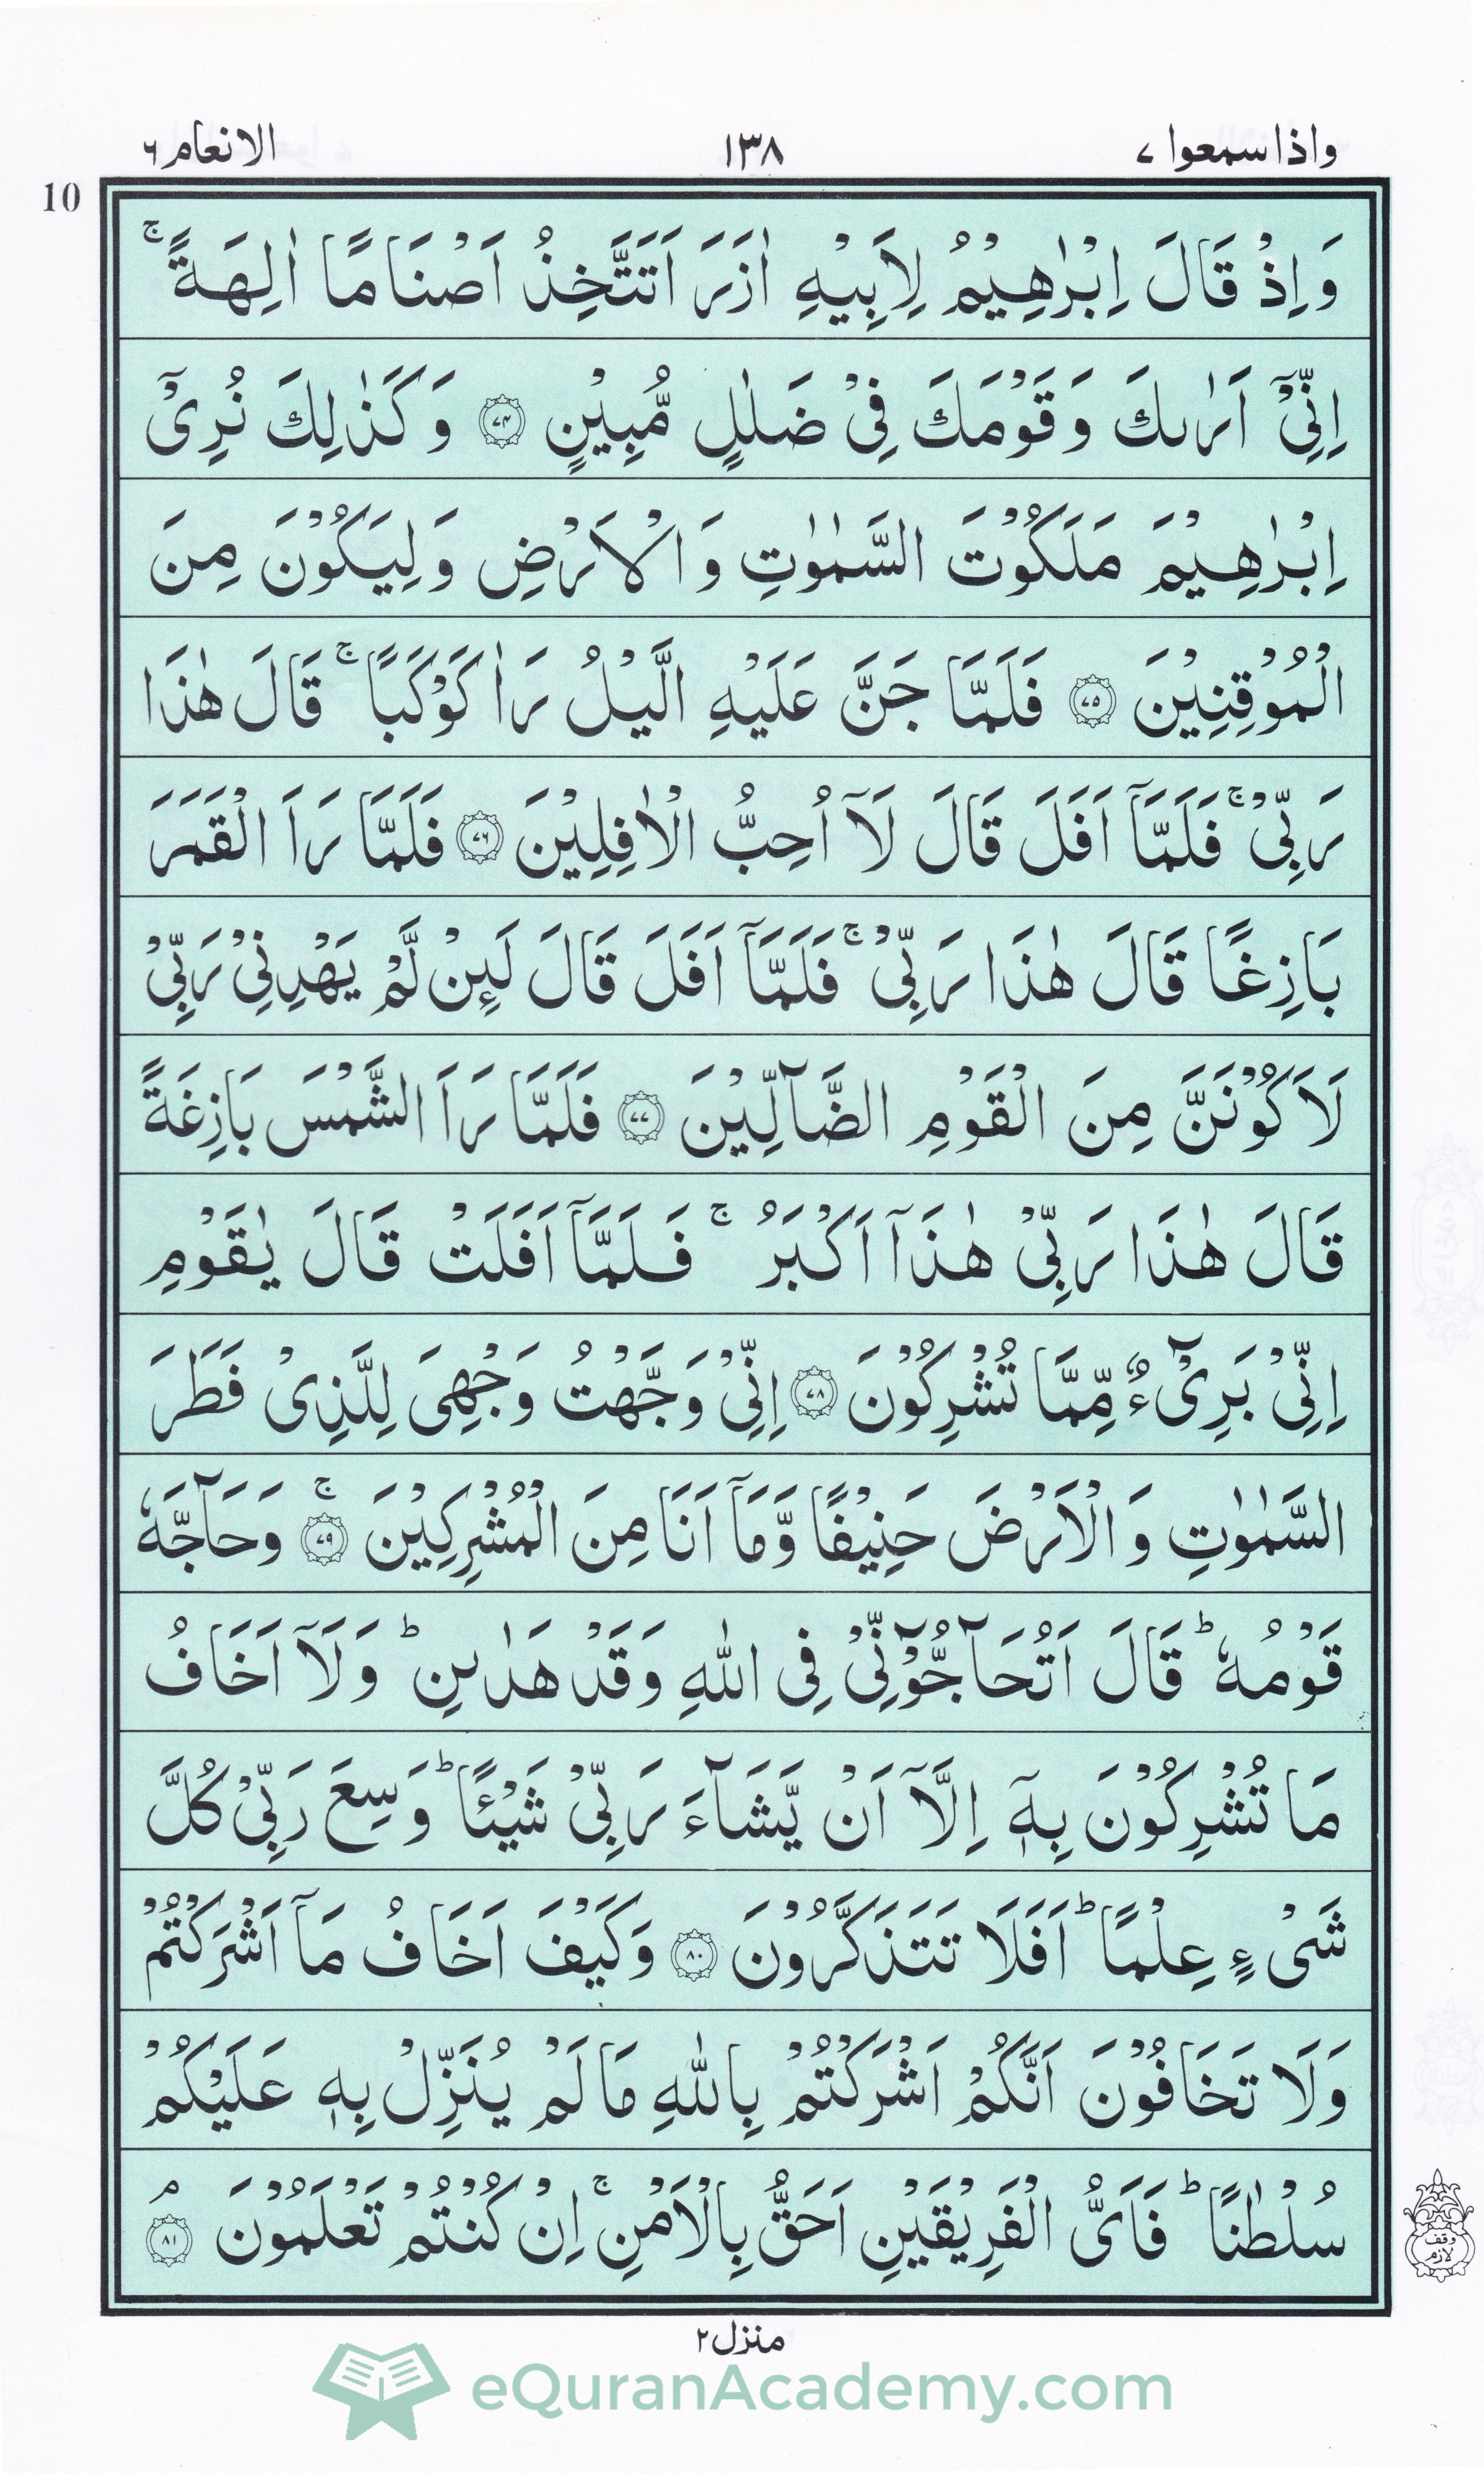 واذاسمعوا ٧
١٣٨
الانعام ٦
10
وَاِذْ قَالَ اِبْرٰهِيْمُ لِاَبِيْهِ اٰزَرَ اَتَتَّخِذُ اَصْنَامًا اٰلِهَةً ۚ
اِنِّيْۤ اَرٰىكَ وَقَوْمَكَ فِيْ ضَلٰلٍ مُّبِيْنٍ ﴿٧٤﴾ وَكَذٰلِكَ نُرِيْۤ
اِبْرٰهِيْمَ مَلَكُوْتَ السَّمٰوٰتِ وَالْاَرْضِ وَلِيَكُوْنَ مِنَ
الْمُوْقِنِيْنَ ﴿٧٥﴾ فَلَمَّا جَنَّ عَلَيْهِ الَّيْلُ رَاٰ كَوْكَبًا ۚ قَالَ هٰذَا
رَبِّيْ ۚ فَلَمَّاۤ اَفَلَ قَالَ لَاۤ اُحِبُّ الْاٰفِلِيْنَ ﴿٧٦﴾ فَلَمَّا رَاَ الْقَمَرَ
بَازِغًا قَالَ هٰذَا رَبِّيْ ۚ فَلَمَّاۤ اَفَلَ قَالَ لَىِٕنْ لَّمْ يَهْدِنِيْ رَبِّيْ
لَاَكُوْنَنَّ مِنَ الْقَوْمِ الضَّآلِّيْنَ ﴿٧٧﴾ فَلَمَّا رَاَ الشَّمْسَ بَازِغَةً
قَالَ هٰذَا رَبِّيْ هٰذَاۤ اَكْبَرُ ۚ فَلَمَّاۤ اَفَلَتْ قَالَ يٰقَوْمِ
اِنِّيْ بَرِيْٓءٌ مِّمَّا تُشْرِكُوْنَ ﴿٧٨﴾ اِنِّيْ وَجَّهْتُ وَجْهِيَ لِلَّذِيْ فَطَرَ
السَّمٰوٰتِ وَالْاَرْضَ حَنِيْفًا وَّمَاۤ اَنَا مِنَ الْمُشْرِكِيْنَ ۚ ﴿٧٩﴾ وَحَآجَّهٗ
قَوْمُهٗ ؕ قَالَ اَتُحَآجُّوْٓنِّيْ فِي اللّٰهِ وَقَدْ هَدٰىنِ ؕ وَلَاۤ اَخَافُ
مَا تُشْرِكُوْنَ بِهٖۤ اِلَّاۤ اَنْ يَّشَآءَ رَبِّيْ شَيْـًٔا ؕ وَسِعَ رَبِّيْ كُلَّ
شَيْءٍ عِلْمًا ؕ اَفَلَا تَتَذَكَّرُوْنَ ﴿٨٠﴾ وَكَيْفَ اَخَافُ مَاۤ اَشْرَكْتُمْ
وَلَا تَخَافُوْنَ اَنَّكُمْ اَشْرَكْتُمْ بِاللّٰهِ مَا لَمْ يُنَزِّلْ بِهٖ عَلَيْكُمْ
سُلْطٰنًا ؕ فَاَيُّ الْفَرِيْقَيْنِ اَحَقُّ بِالْاَمْنِ ۚ اِنْ كُنْتُمْ تَعْلَمُوْنَ ۘ ﴿٨١﴾
وقف لازم
منزل ٢
eQuranAcademy.com